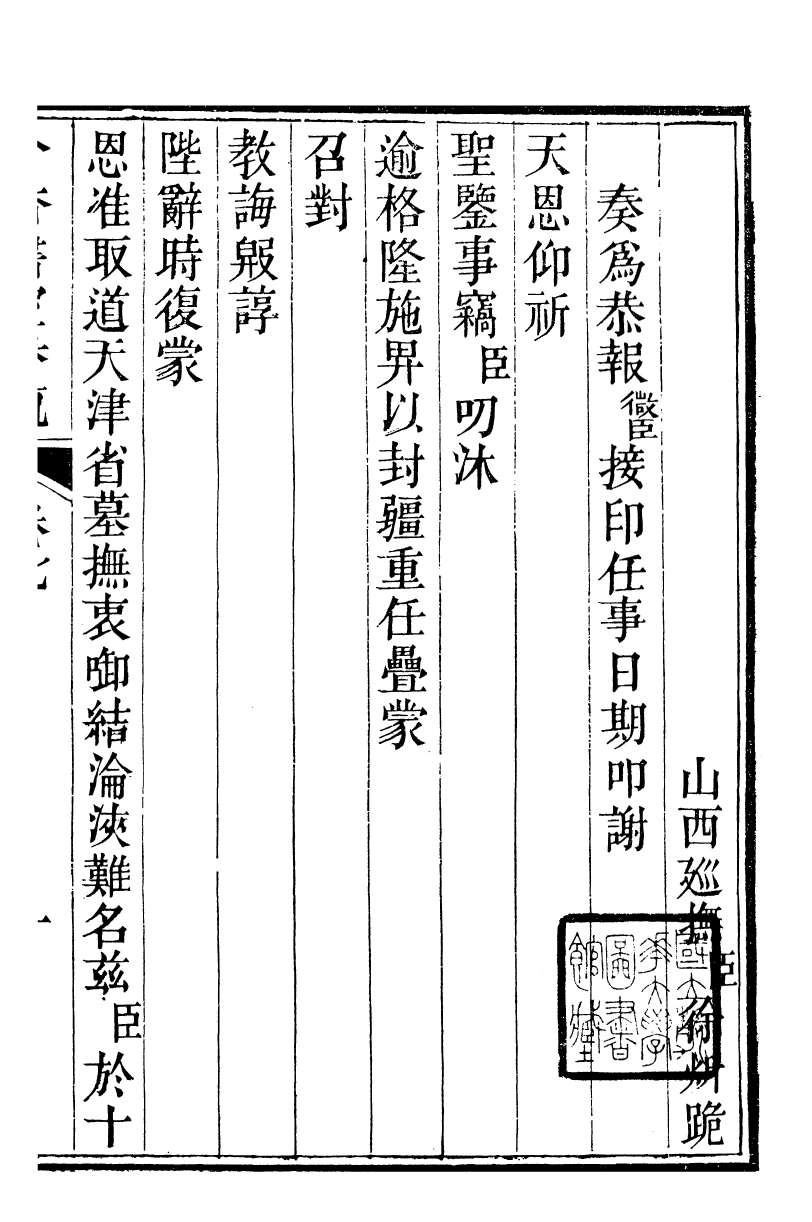 山西廵撫臣徐炘跪
奏爲恭報微臣接印任事日期叩謝
天恩仰祈
聖鑒事竊臣叨沐
逾格隆施畀以封疆重任疊蒙
召對
教誨殷諄
陛辭時復蒙
恩准取道天津省墓撫衷啣結淪浹難名兹臣於十
卷七
一
國立清華大學圖書館藏